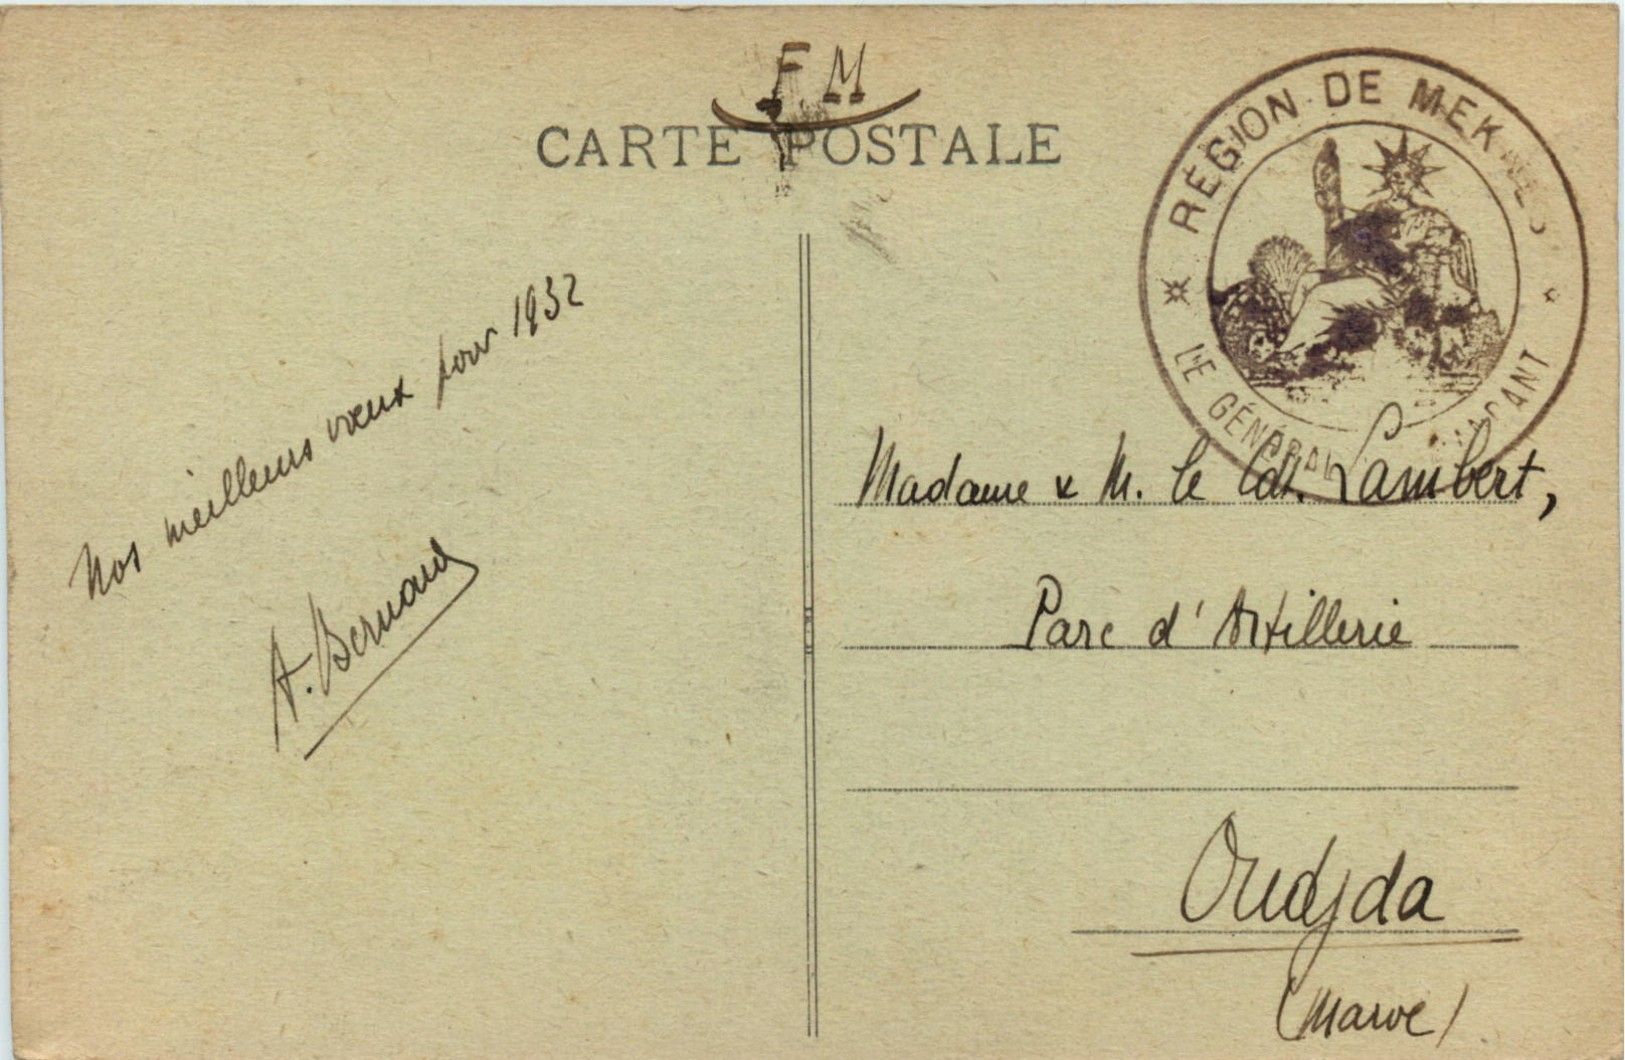 F M
CARTE POSTALE
RÉGION DE MEKNES
LE GÉNÉRAL
Nos meilleurs vœux pour 1932
A. Bernard
Madame & M. le Cdt. Lambert,
Parc d'Artillerie
Oudjda
(Maroc)